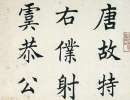 唐故特
右僕射
虞恭公